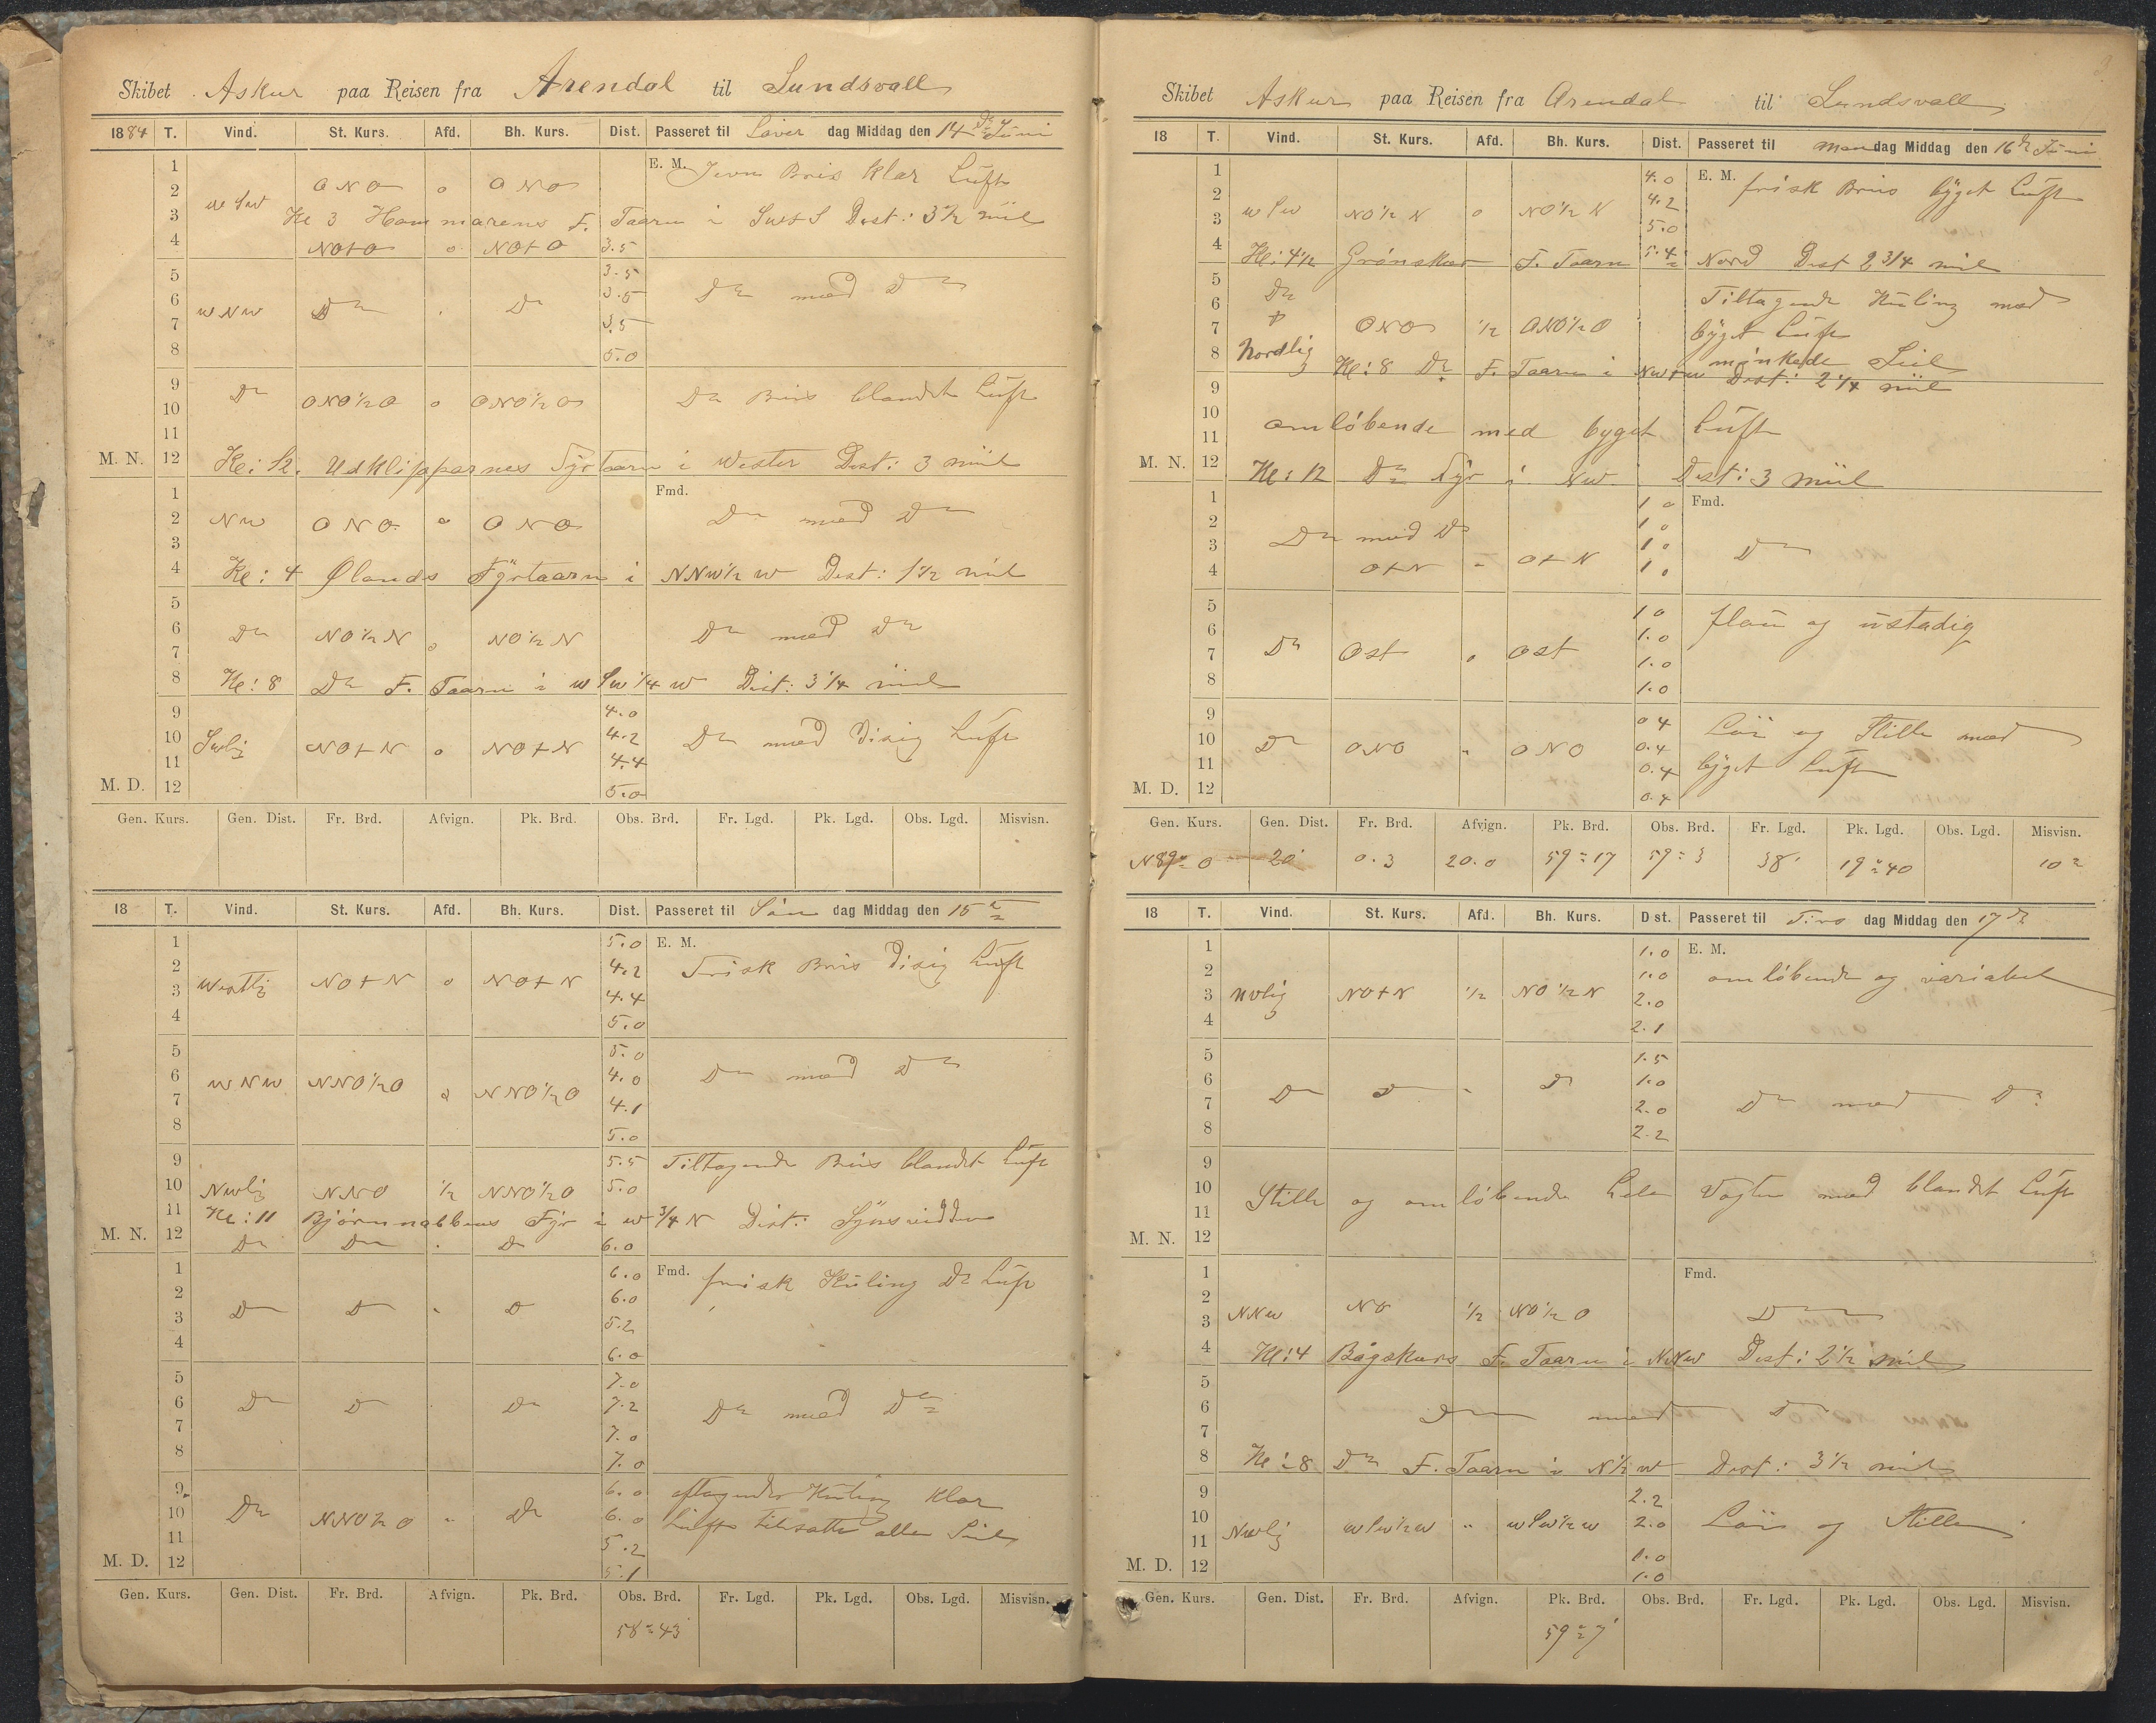 Skibet Askur paa Reisen fra Arendal til Sundsvall
1884 T. Vind. St. Kurs. Afd. Bh. Kurs. Dist. Passeret til Löver dag Middag den 14 de Juni
1 E. M. Jevn Bris klar Luft
2 ONO o ONO
3 Kl 3 Hammarens F. Taarn i SWtS Dist: 3½ mil
4 NOtO o NOtO 3.5
5 3.5
6 WNW Do . Do 3.5 Do med Do
7 3.5
8 5.0
9 Do ONO½O o ONO½O Do Bris blandet Luft
10
11
M. N. 12 Kl: 12. Udklipparnes Fyrtaarn i Wester Dist: 3 mil
1 Fmd.
2 NW ONO o ONO Do med Do
3
4 Kl: 4 Ølands Fyrtaarn i NNW½W Dist: 1½ mil
5
6 Do NO½N o NO½N Do med Do
7
8 Kl: 8 Do F. Taarn i WSW¼W Dist: 3¼ mil
9 4.0
10 Swlig NOtN o NOtN 4.2 Do med Disig Luft
11 4.4
M. D. 12 5.0
Gen. Kurs. Gen. Dist. Fr. Brd. Afvign. Pk. Brd. Obs. Brd. Fr. Lgd. Pk. Lgd. Obs. Lgd. Misvisn.
18 T. Vind. St. Kurs. Afd. Bh. Kurs. Dist. Passeret til Søn dag Middag den 15
1 5.0 E. M.
2 4.2 Frisk Bris Disig Luft
3 Westlig NOtN o NOtN 4.4
4 5.0
5 5.0
6 WNW NNO½O o NNO½O 4.0 Do med Do
7 4.1
8 5.0
9 5.5 Tiltagende Bris blandet Luft
10 Nwlig NNO ½ NNO½O 5.0
11 Kl: 11 Bjørnnabbens Fyr i W¾N Dist: Synsvidden
M. N. 12 Do Do . Do 6.0
1 6.0 Fmd. frisk Kuling Do Luft
2 6.0
3 Do Do " Do 5.2
4 6.0
5 7.0
6 Do Do Do 7.2 Do med Do
7 7.0
8 7.0
9 6.0 aftagende Kuling klar
10 Do NNO½O " Do 6.0 Luft tilsatte alle Seil
11 5.2
M. D. 12 5.1
Gen. Kurs. Gen. Dist. Fr. Brd. Afvign. Pk. Brd. Obs. Brd. Fr. Lgd. Pk. Lgd. Obs. Lgd. Misvisn.
58°43'
Skibet Askur paa Reisen fra Arendal til Sundsvall
18 T. Vind. St. Kurs. Afd. Bh. Kurs. Dist. Passeret til Man dag Middag den 16 de Juni
1 4.0 E. M. frisk Bris byget Luft
2 4.2
3 WSW NO½N o NO½N 5.0
4 Kl: 4½ Grönskär F. Taarn i Nord Dist 2¾ mil 5.4
5 Do Tiltagende Kuling med
6
7 ONO ½ ONO½O byget Luft
8 Nordlig minkede Seil
Kl: 8 Do F. Taarn i NWtW Dist: 2¼ mil
9
10 omløbende med byget Luft
11
M. N. 12 Kl: 12 Do Fyr i NW Dist: 3 miil
1 1 0 Fmd.
2 Do med Do 1 0
3 1 0 Do
4 OtN " OtN 1 0
5 1 0 flau og ustadig
6 1.0
7 Do Ost o Ost 1.0
8 1.0
9 0 4 Löi og Stille med
10 Do ONO " ONO 0.4
11 0.4 byget Luft
M. D. 12 0.4
Gen. Kurs. Gen. Dist. Fr. Brd. Afvign. Pk. Brd. Obs. Brd. Fr. Lgd. Pk. Lgd. Obs. Lgd. Misvisn.
N89°O 20 0.3 20.0 59°17 59°3 38' 19°40 10°
18 T. Vind. St. Kurs. Afd. Bh. Kurs. Dist. Passeret til Tirs dag Middag den 17 de
1 1.0 E. M.
2 1.0 omløbende og variabel
3 NWlig NOtN ½ NO½N 2.0
4 2.1
5 1.5
6 Do Do " Do 1.0
7 2.0 Do med Do
8 2.2
9
10 Stille og omløbende hele Vagten med blandet Luft
11
M. N. 12
1 Fmd.
2 NO ½ NO½O Do
3 NNW
4 Kl: 4 Bogskärs F. Taarn i NNW Dist: 2½ mil
5
6 Do med Do
7
8 Kl: 8 Do F. Taarn i N½W Dist: 3½ mil
9 2.2
10 Nwlig WSW½W " WSW½W 2.0 Löi og Stille
11 1.0
M. D. 12 1.0
Gen. Kurs. Gen. Dist. Fr. Brd. Afvign. Pk. Brd. Obs. Brd. Fr. Lgd. Pk. Lgd. Obs. Lgd. Misvisn.
59°7'